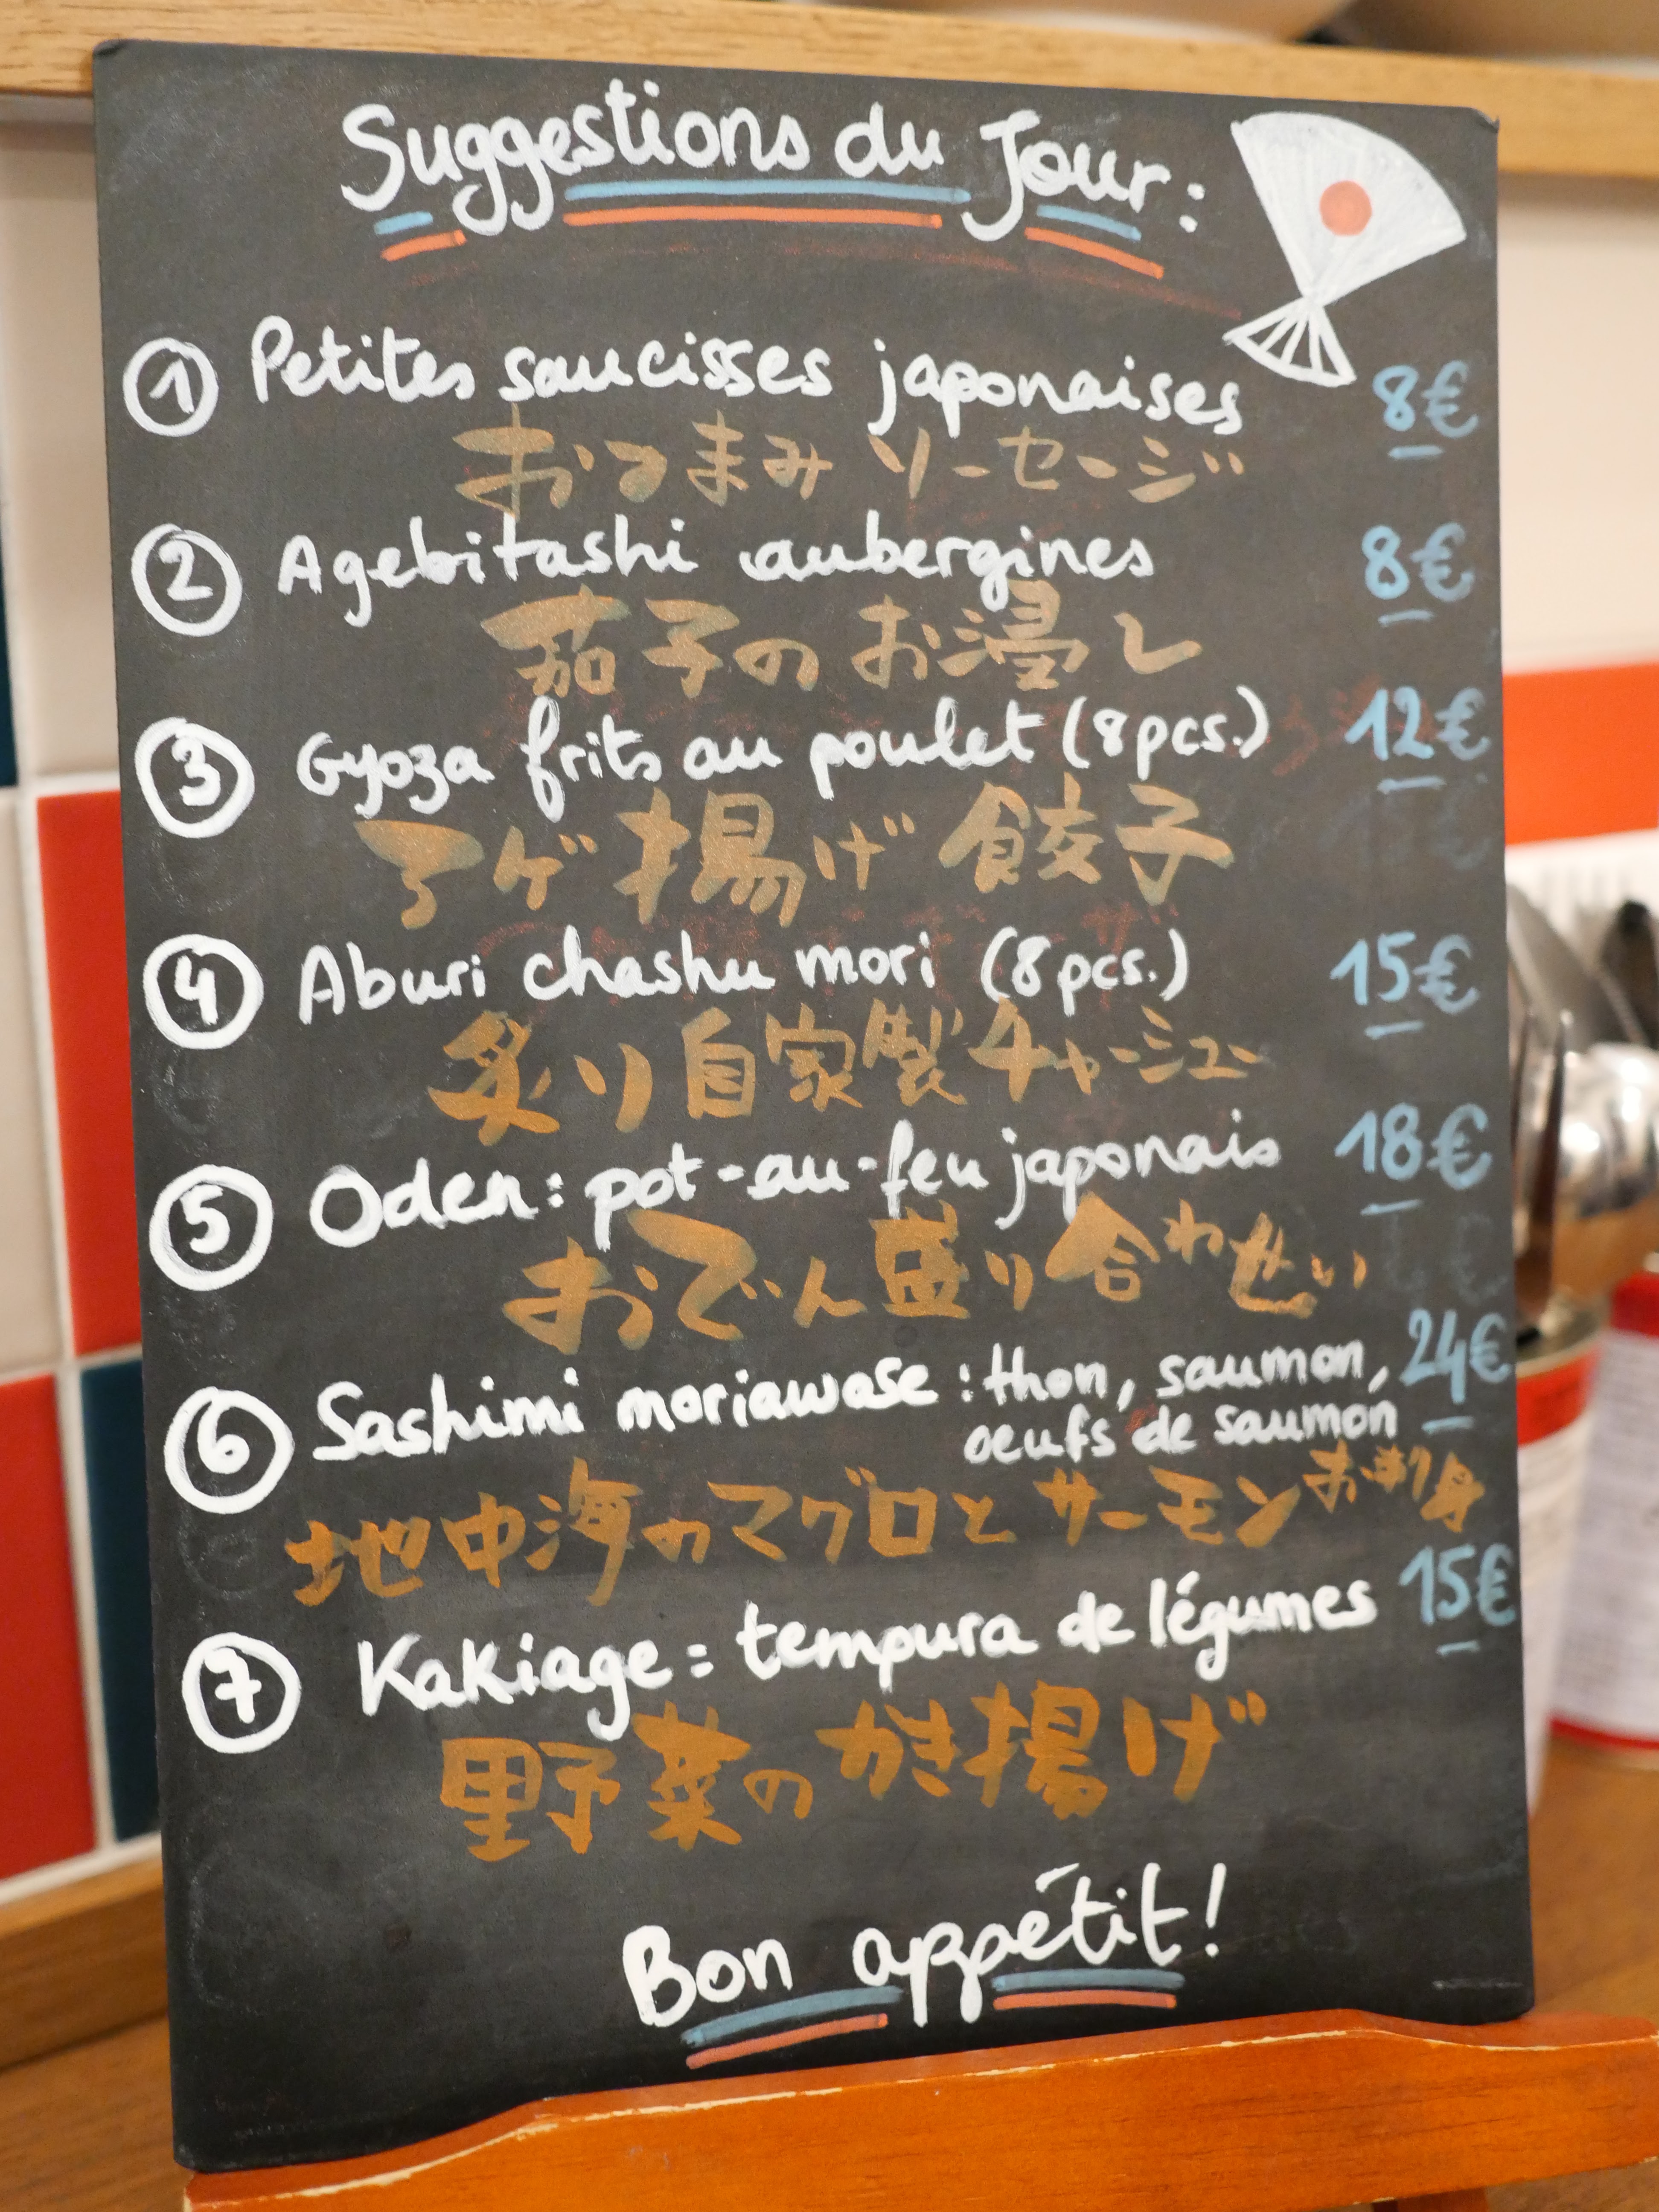 Suggestions du Jour :
① Petites saucisses japonaises 8€
おつまみ ソーセージ
② Agebitashi aubergines 8€
茄子のお浸し
③ Gyoza frits au poulet (8pcs.) 12€
アゲ揚げ餃子
④ Aburi chashu mori (8pcs.) 15€
炙り自家製チャーシュー
⑤ Oden : pot-au-feu japonais 18€
おでん盛り合わせ
⑥ Sashimi moriawase : thon, saumon, 24€
oeufs de saumon
地中海のマグロとサーモンお刺身
⑦ Kakiage = tempura de légumes 15€
野菜のかき揚げ
Bon appétit !